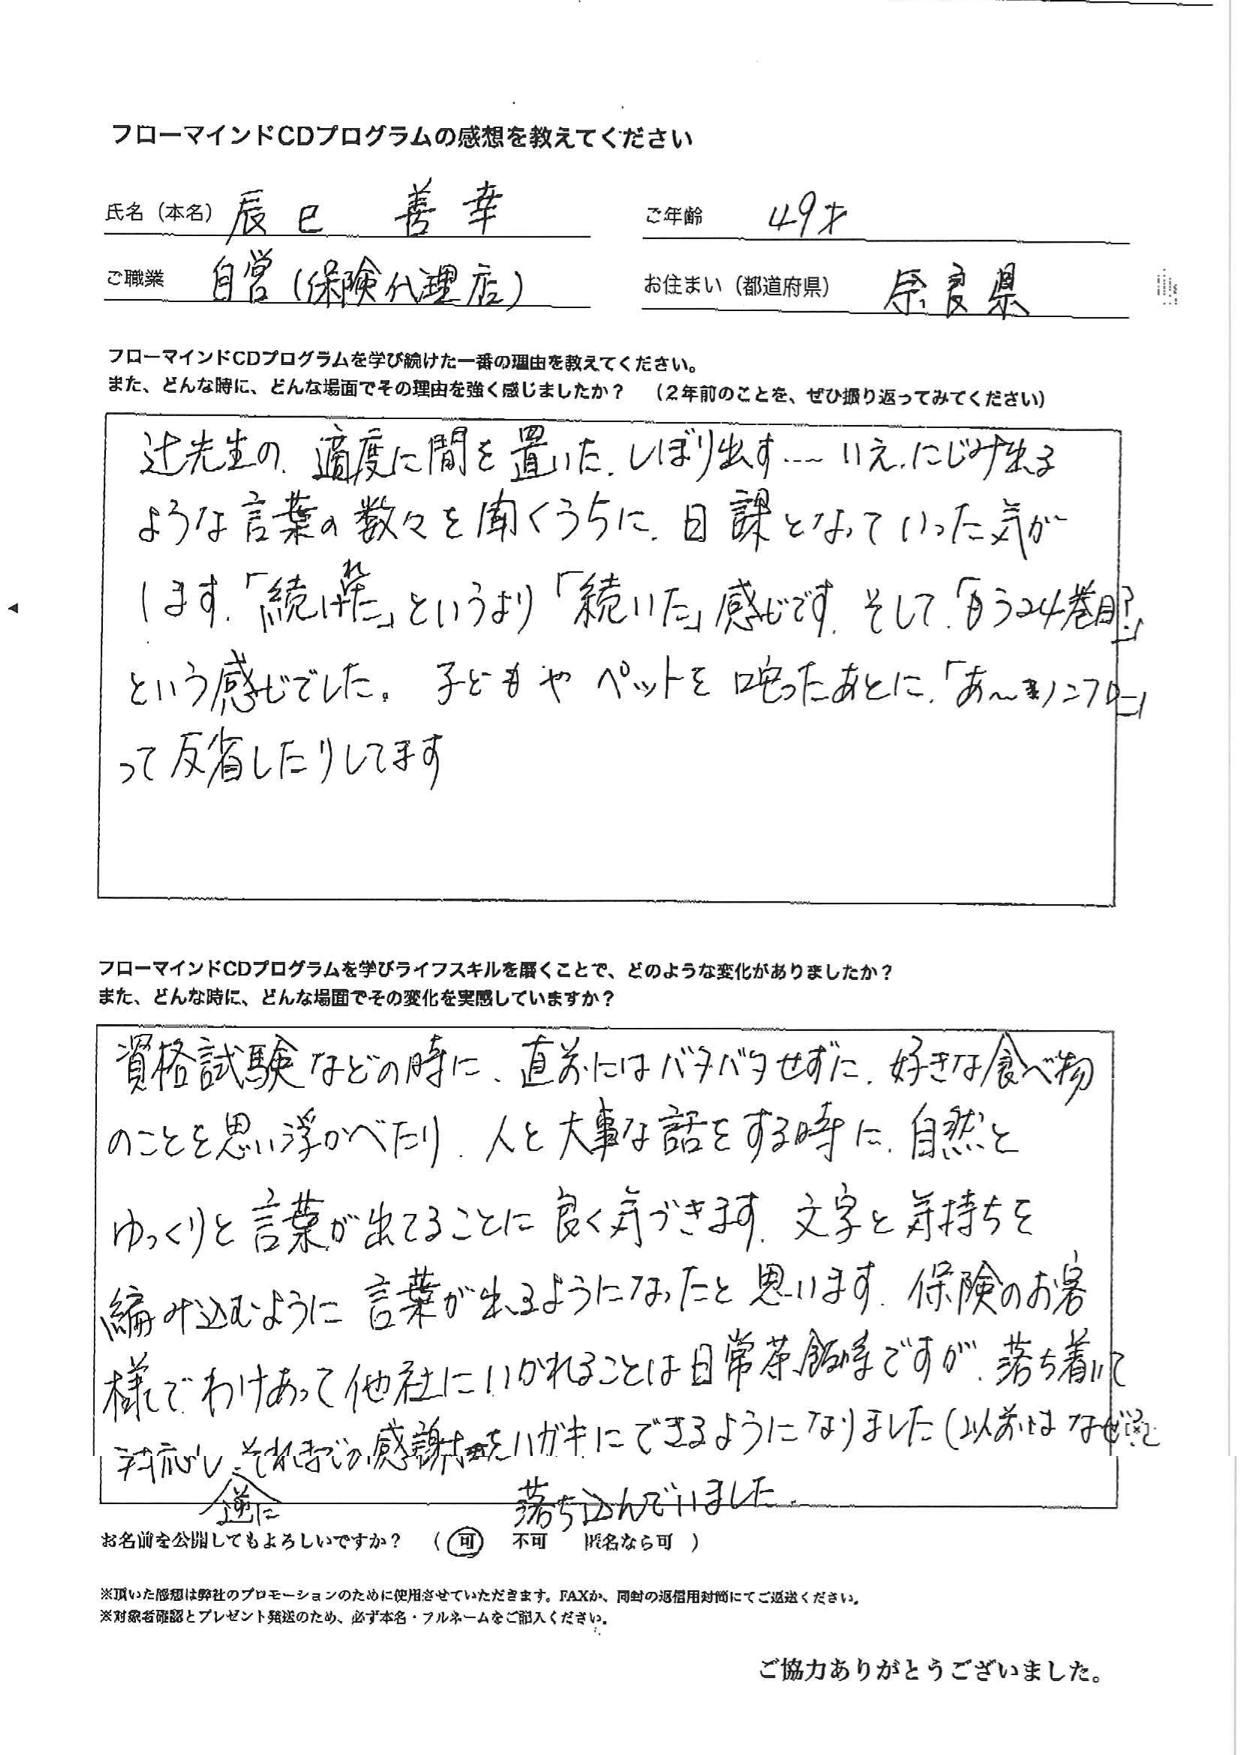 フローマインドCDプログラムの感想を教えてください
氏名（本名） 辰巳 善幸
ご年齢 49才
ご職業 自営（保険代理店）
お住まい（都道府県） 奈良県
フローマインドCDプログラムを学び続けた一番の理由を教えてください。
また、どんな時に、どんな場面でその理由を強く感じましたか？ （2年前のことを、ぜひ振り返ってみてください）
辻先生の、適度に間を置いた、しぼり出す…… いえ、にじみ出る
ような言葉の数々を聞くうちに、日課となっていった気が
します。「続けれた」というより「続いた」感じです。そして、「もう24巻目?」
という感じでした。 子どもや ペットを 叱ったあとに、「あ〜 ノンフロー」
って反省したりしてます
フローマインドCDプログラムを学びライフスキルを磨くことで、どのような変化がありましたか？
また、どんな時に、どんな場面でその変化を実感していますか？
資格試験などの時に、直前にはバタバタせずに、好きな食べ物
のことを思い浮かべたり、人と大事な話をする時に、自然と
ゆっくりと言葉が出てることに良く気づきます。文字と気持ちを
編み込むように言葉が出るようになったと思います。保険のお客
様でわけあって他社にいかれることは日常茶飯時ですが、落ち着いて
対応し、逆に それまでの感謝をハガキにできるようになりました（以前はなぜ？と
落ち込んでいました。
お名前を公開してもよろしいですか？ （ 可 不可 匿名なら可 ）
※頂いた感想は弊社のプロモーションのために使用させていただきます。FAXか、同封の返信用封筒にてご返送ください。
※対象者確認とプレゼント発送のため、必ず本名・フルネームをご記入ください。
ご協力ありがとうございました。